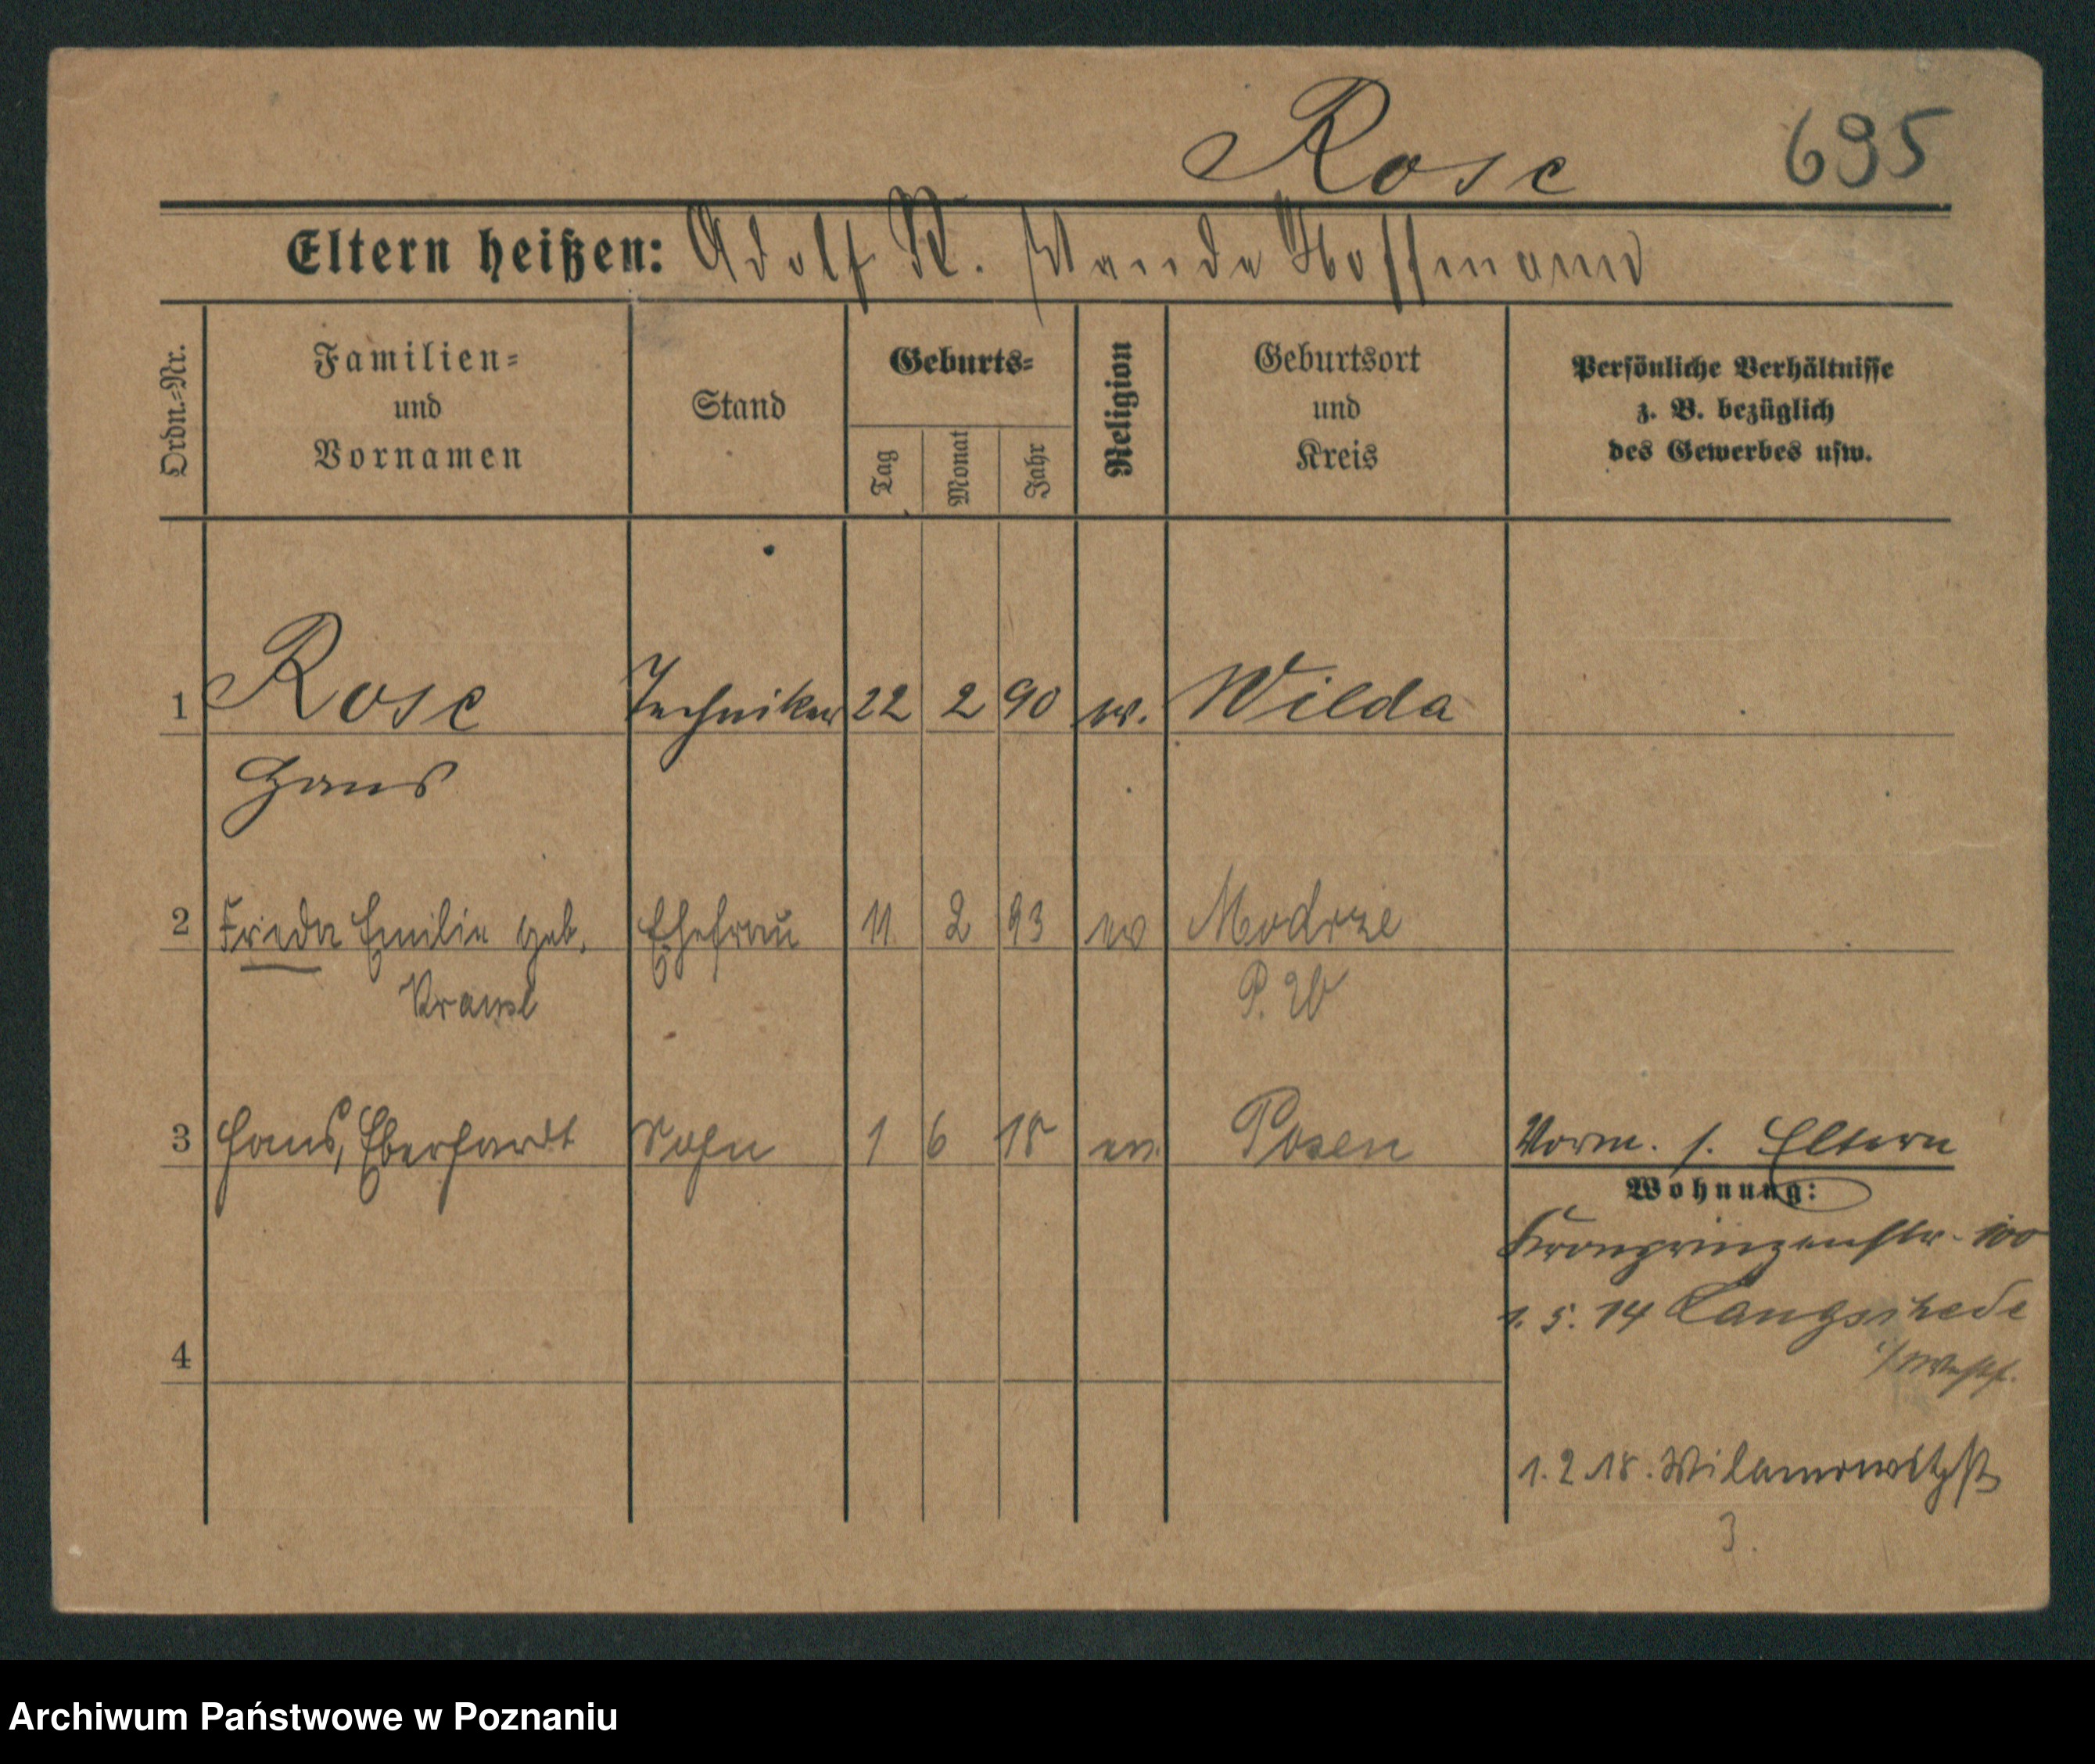 Rose 695
Eltern heißen: Adolf R. Wanda Hoffmann
Ordn.=Nr.
Familien=
und
Vornamen
Stand
Geburts=
Tag
Monat
Jahr
Religion
Geburtsort
und
Kreis
Persönliche Verhältnisse
z. B. bezüglich
des Gewerbes usw.
1 Rose Techniker 22 2 90 ev. Wilda
Hans
2 Frieda Emilie geb. Ehefrau 11. 2 93 ev Modrze
P. W
3 Hans, Eberhardt Sohn 1 6 18 ev. Posen Vorm. s. Eltern
Wohnung:
Kronprinzenstr. 100
1. 5. 14 Langschede
i/Westf.
4
1. 2. 18. Wilamowitzstr
3.
Archiwum Państwowe w Poznaniu